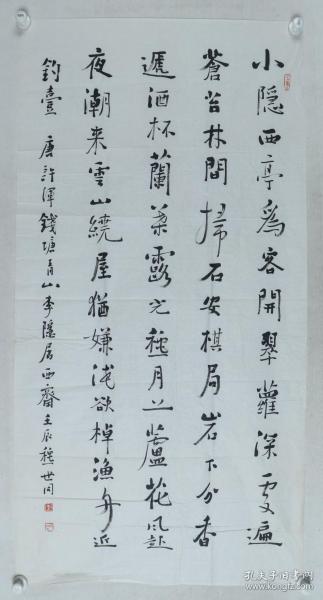 小隐西亭為客開翠蘿深處遍
蒼苔林間掃石安棋局岩下分香
遞酒杯蘭葉露光穐月上蘆花風起
夜潮来雲山繞屋猶嫌淺欲棹漁舟近
釣臺 唐許渾錢塘青山李隱居西齋 壬辰穐世同
孔夫子旧书网